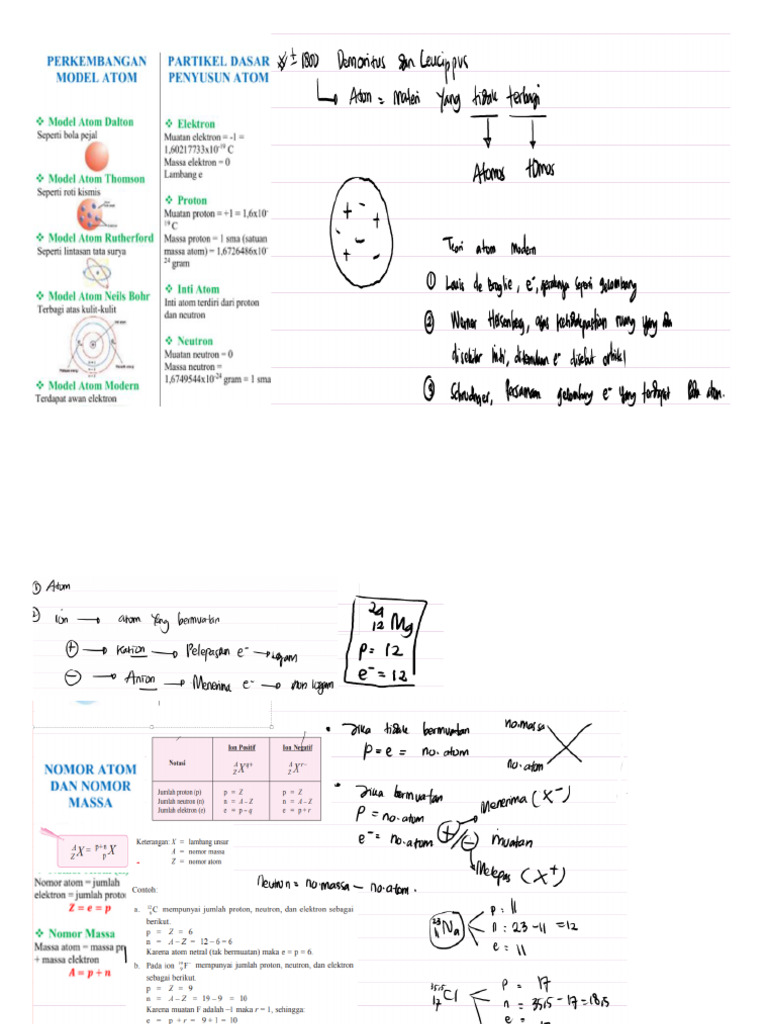 PERKEMBANGAN
MODEL ATOM
❖ Model Atom Dalton
Seperti bola pejal
❖ Model Atom Thomson
Seperti roti kismis
❖ Model Atom Rutherford
Seperti lintasan tata surya
❖ Model Atom Neils Bohr
Terbagi atas kulit-kulit
❖ Model Atom Modern
Terdapat awan elektron
PARTIKEL DASAR
PENYUSUN ATOM
❖ Elektron
Muatan elektron = -1 =
1,60217733x10-19 C
Massa elektron = 0
Lambang e
❖ Proton
Muatan proton = +1 = 1,6x10-
19 C
Massa proton = 1 sma (satuan
massa atom) = 1,6726486x10-
24 gram
❖ Inti Atom
Inti atom terdiri dari proton
dan neutron
❖ Neutron
Muatan neutron = 0
Massa neutron =
1,6749544x10-24 gram = 1 sma
± 1800 Demoritus dan Leucippus
Atom = Materi yang tidak terbagi
Atomos tomos
+ -
+
- -
+ -
Teori atom Modern
① Louis de Broglie, e-, seperti gelombang
② Werner Heisenberg, ruang yang
inti, e- disebut orbital
③ Schrodinger, Persamaan gelombang e- yang terdapat pada atom.
① Atom
② Ion → atom yang bermuatan
+ → Kation → Pelepasan e- → logam
- → Anion → Menerima e- → non logam
24
12 Mg
P = 12
e- = 12
NOMOR ATOM
DAN NOMOR
MASSA
Notasi Ion Positif Ion Negatif
A Z X q+ A Z X r-
Jumlah proton (p) p = Z p = Z
Jumlah neutron (n) n = A – Z n = A – Z
Jumlah elektron (e) e = p – q e = p + r
A Z X = p+n p X
Keterangan: X = lambang unsur
A = nomor massa
Z = nomor atom
Nomor atom = jumlah
elektron = jumlah proton
Z = e = p
❖ Nomor Massa
Massa atom = massa
+ massa elektron
A = p + n
Contoh:
a. 12 6 C mempunyai jumlah proton, neutron, dan elektron sebagai
berikut.
p = Z = 6
n = A – Z = 12 – 6 = 6
Karena atom netral (tak bermuatan) maka e = p = 6.
b. Pada ion 19 9 F- mempunyai jumlah proton, neutron, dan elektron
sebagai berikut.
p = Z = 9
n = A – Z = 19 – 9 = 10
Karena muatan F adalah –1 maka r = 1, sehingga:
e = p + r = 9 + 1 = 10
• Jika tidak bermuatan
P = e = no. atom
no.massa
no.atom
• Jika bermuatan
P = no.atom
e- = no.atom +/- muatan
Menerima (X-)
Melepas (X+)
Neutron = no.massa - no.atom.
23
11 Na
P = 11
n = 23 - 11 = 12
e = 11
35,5
17 Cl
P = 17
n = 35,5 - 17 = 18,5
e =